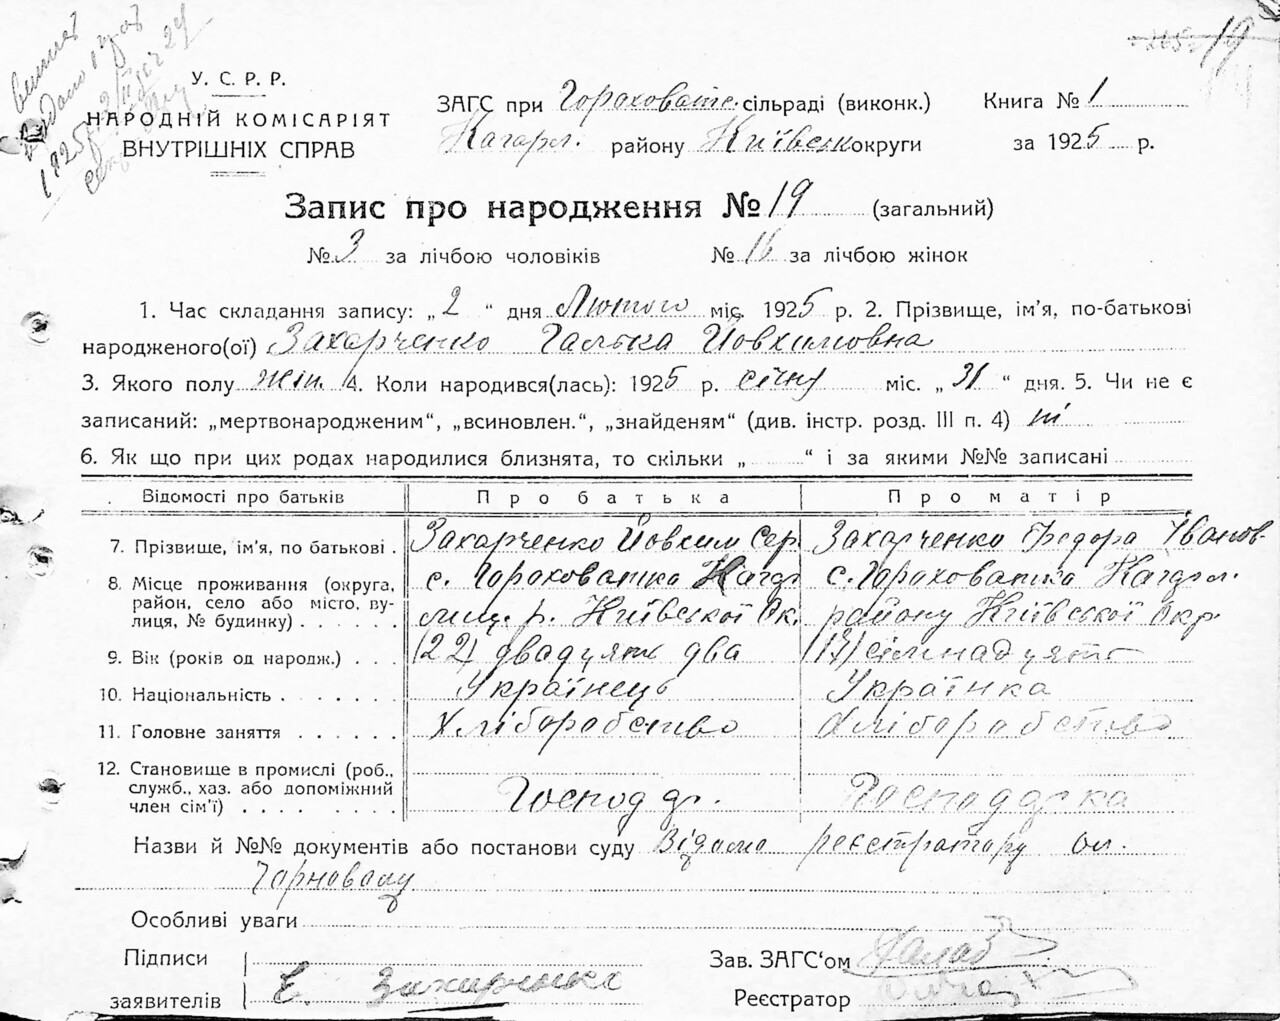 У. С. Р. Р.
НАРОДНІЙ КОМІСАРІЯТ
ВНУТРІШНІХ СПРАВ
ЗАГС при Гороховатс. сільраді (виконк.)
Кагарл. району Київськ округи
Книга № 1
за 1925 р.
19
Запис про народження № 19 (загальний)
№ 3 за лічбою чоловіків № 16 за лічбою жінок
1. Час складання запису: „2“ дня Лютого міс. 1925 р. 2. Прізвище, ім'я, по-батькові
народженого(ої) Захарченко Галька Йовхимовна
3. Якого полу жін. 4. Коли народився(лась): 1925 р. січня міс. „31“ дня. 5. Чи не є
записаний: „мертвонародженим“, „всиновлен.“, „знайденям“ (див. інстр. розд. III п. 4) ні
6. Як що при цих родах народилися близнята, то скільки „ “ і за якими №№ записані
Відомості про батьків Про батька Про матір
7. Прізвище, ім'я, по батькові . Захарченко Йовхим Сер. Захарченко Федора Іванов.
8. Місце проживання (округа, с. Гороховатка Кагар с. Гороховатка Кагарл.
район, село або місто, ву-
лиця, № будинку) . . . . . . лиц. р. Київської Ок. району Київської Окр
9. Вік (років од народж.) . . . (22) двадцять два (17) сімнадцять
10. Національність . . . . . . Українець Українка
11. Головне заняття . . . . . . Хліборобство Хліборобство
12. Становище в промислі (роб.,
служб., хаз. або допоміжний
член сім'ї) . . . . . . . . Господар. Господарка
Назви й №№ документів або постанови суду Відомо реєстратору
Особливі уваги
Підписи
заявителів Є. Захарченко
Зав. ЗАГС'ом
Реєстратор